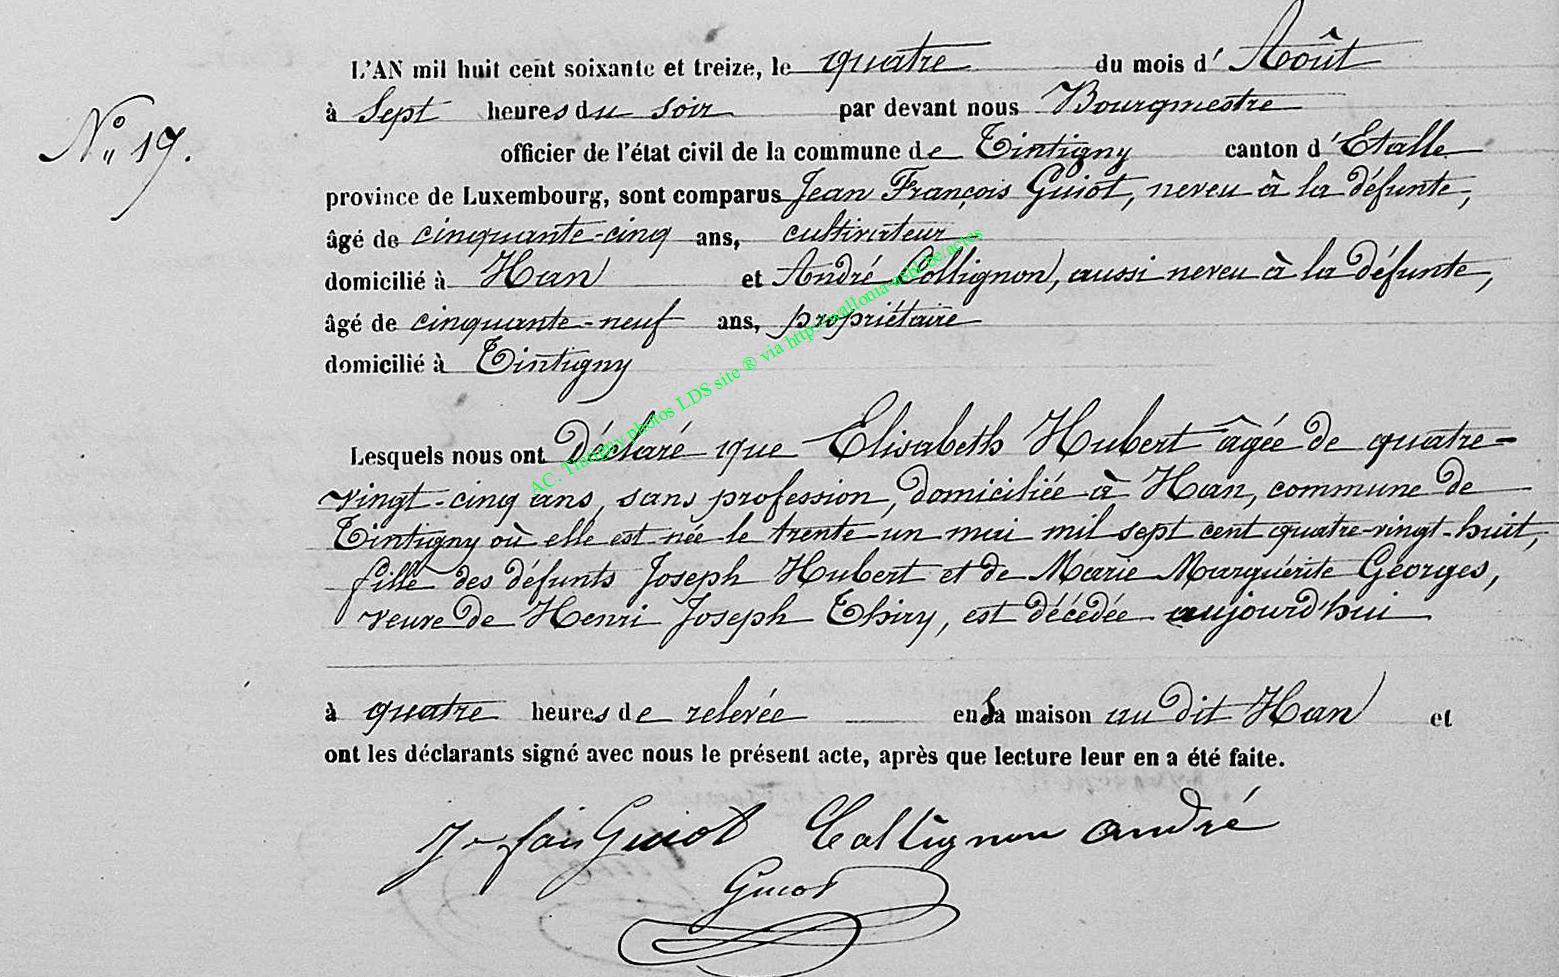 L'AN mil huit cent soixante et treize, le quatre du mois d' Août
à Sept heures du soir par devant nous Bourgmestre
N° 19.
officier de l'état civil de la commune de Tintigny canton d'Etalle
province de Luxembourg, sont comparus Jean François Guiot, neveu à la défunte,
âgé de cinquante-cinq ans, cultivateur
domicilié à Han et André Collignon, aussi neveu à la défunte,
âgé de cinquante-neuf ans, propriétaire
domicilié à Tintigny
AC. Tintigny photos LDS site ® via http://wallonia-asbl.be/actes
Lesquels nous ont Déclaré que Elisabeth Hubert âgée de quatre-
vingt-cinq ans, sans profession, domiciliée à Han, commune de
Tintigny où elle est née le trente-un mai mil sept cent quatre-vingt-huit,
fille des défunts Joseph Hubert et de Marie Marguérite Georges,
veuve de Henri Joseph Thiry, est décédée aujourd'hui
à quatre heures de relevée en sa maison au dit Han et
ont les déclarants signé avec nous le présent acte, après que lecture leur en a été faite.
J fois Guiot Collignon andré
Guiot